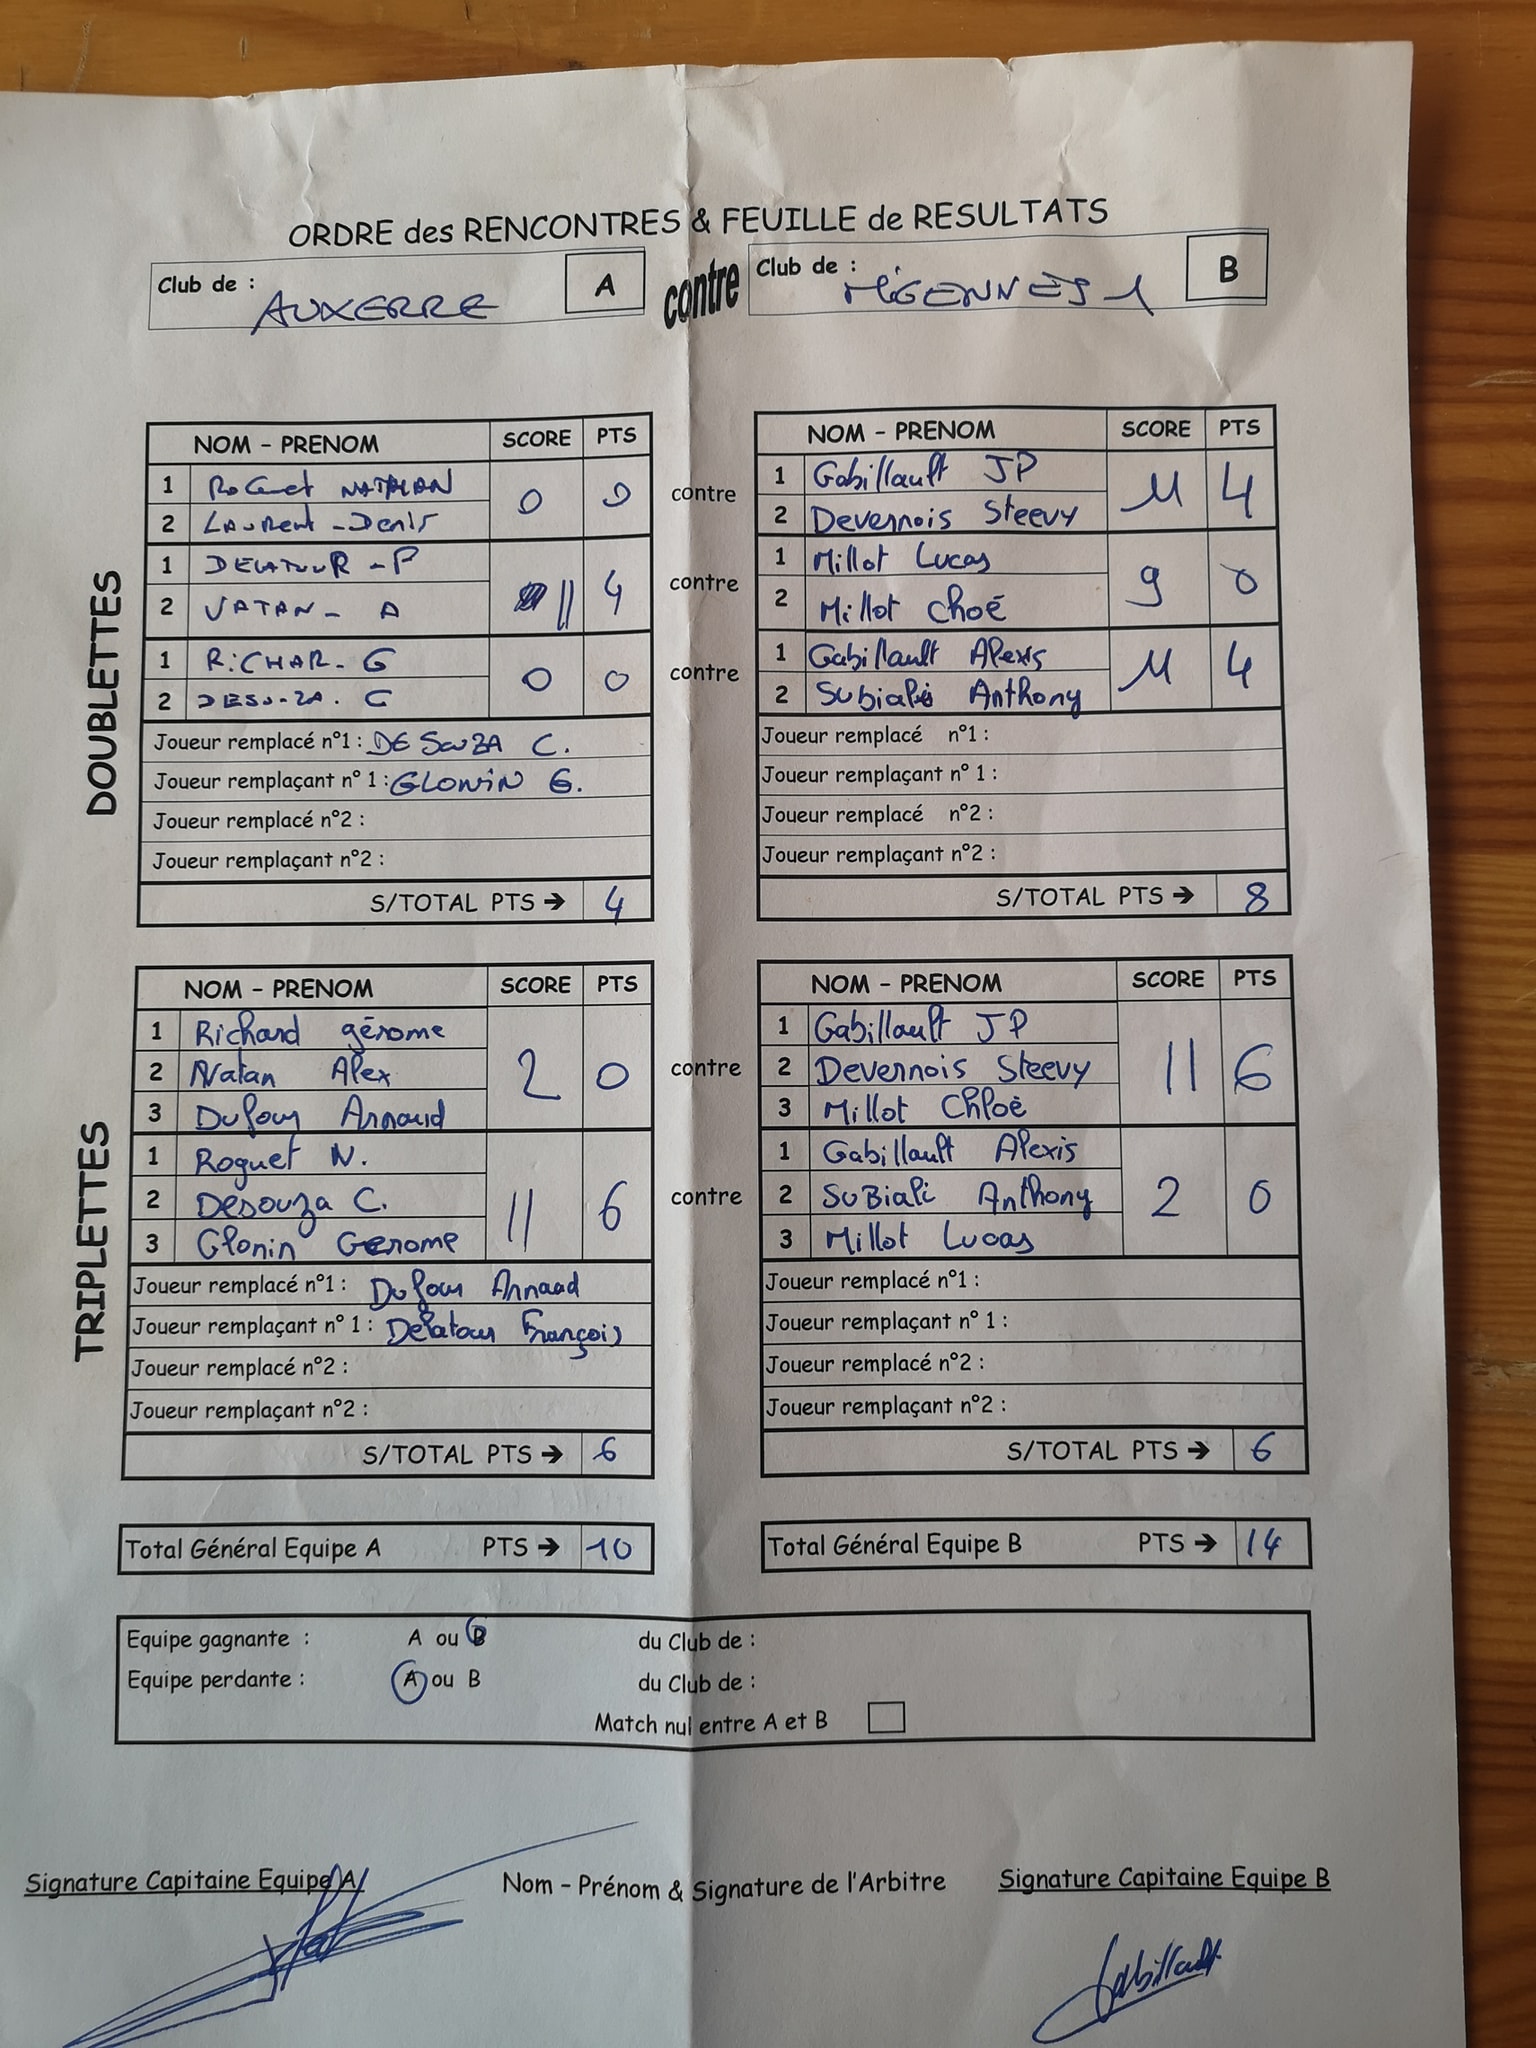 ORDRE des RENCONTRES & FEUILLE de RESULTATS
Club de : AUXERRE A contre Club de : MIGENNES 1 B
DOUBLETTES
NOM - PRENOM SCORE PTS NOM - PRENOM SCORE PTS
1 Roguet NATHAN 0 0 contre 1 Gabillault JP 11 4
2 LAURENT - Denis 2 Devernois Steevy
1 DELATOUR - P 11 4 contre 1 Millot Lucas 9 0
2 VATAN - A 2 Millot Choé
1 RICHAR - G 0 0 contre 1 Gabillault Alexis 11 4
2 DESOUZA. C 2 Subiali Anthony
Joueur remplacé n°1 : DE SOUZA C. Joueur remplacé n°1 :
Joueur remplaçant n° 1 : GLONIN G. Joueur remplaçant n° 1 :
Joueur remplacé n°2 : Joueur remplacé n°2 :
Joueur remplaçant n°2 : Joueur remplaçant n°2 :
S/TOTAL PTS → 4 S/TOTAL PTS → 8
TRIPLETTES
NOM - PRENOM SCORE PTS NOM - PRENOM SCORE PTS
1 Richard gérome 2 0 contre 1 Gabillault JP 11 6
2 Vatan Alex 2 Devernois Steevy
3 Dufour Arnaud 3 Millot Chloé
1 Roguet N. 11 6 contre 1 Gabillault Alexis 2 0
2 Desouza C. 2 SuBiali Anthony
3 Glonin Gerome 3 Millot Lucas
Joueur remplacé n°1 : Dufour Arnaud Joueur remplacé n°1 :
Joueur remplaçant n° 1 : Delatour François Joueur remplaçant n° 1 :
Joueur remplacé n°2 : Joueur remplacé n°2 :
Joueur remplaçant n°2 : Joueur remplaçant n°2 :
S/TOTAL PTS → 6 S/TOTAL PTS → 6
Total Général Equipe A PTS → 10 Total Général Equipe B PTS → 14
Equipe gagnante : A ou B du Club de :
Equipe perdante : A ou B du Club de :
Match nul entre A et B
Signature Capitaine Equipe A Nom - Prénom & Signature de l'Arbitre Signature Capitaine Equipe B
Gabillault